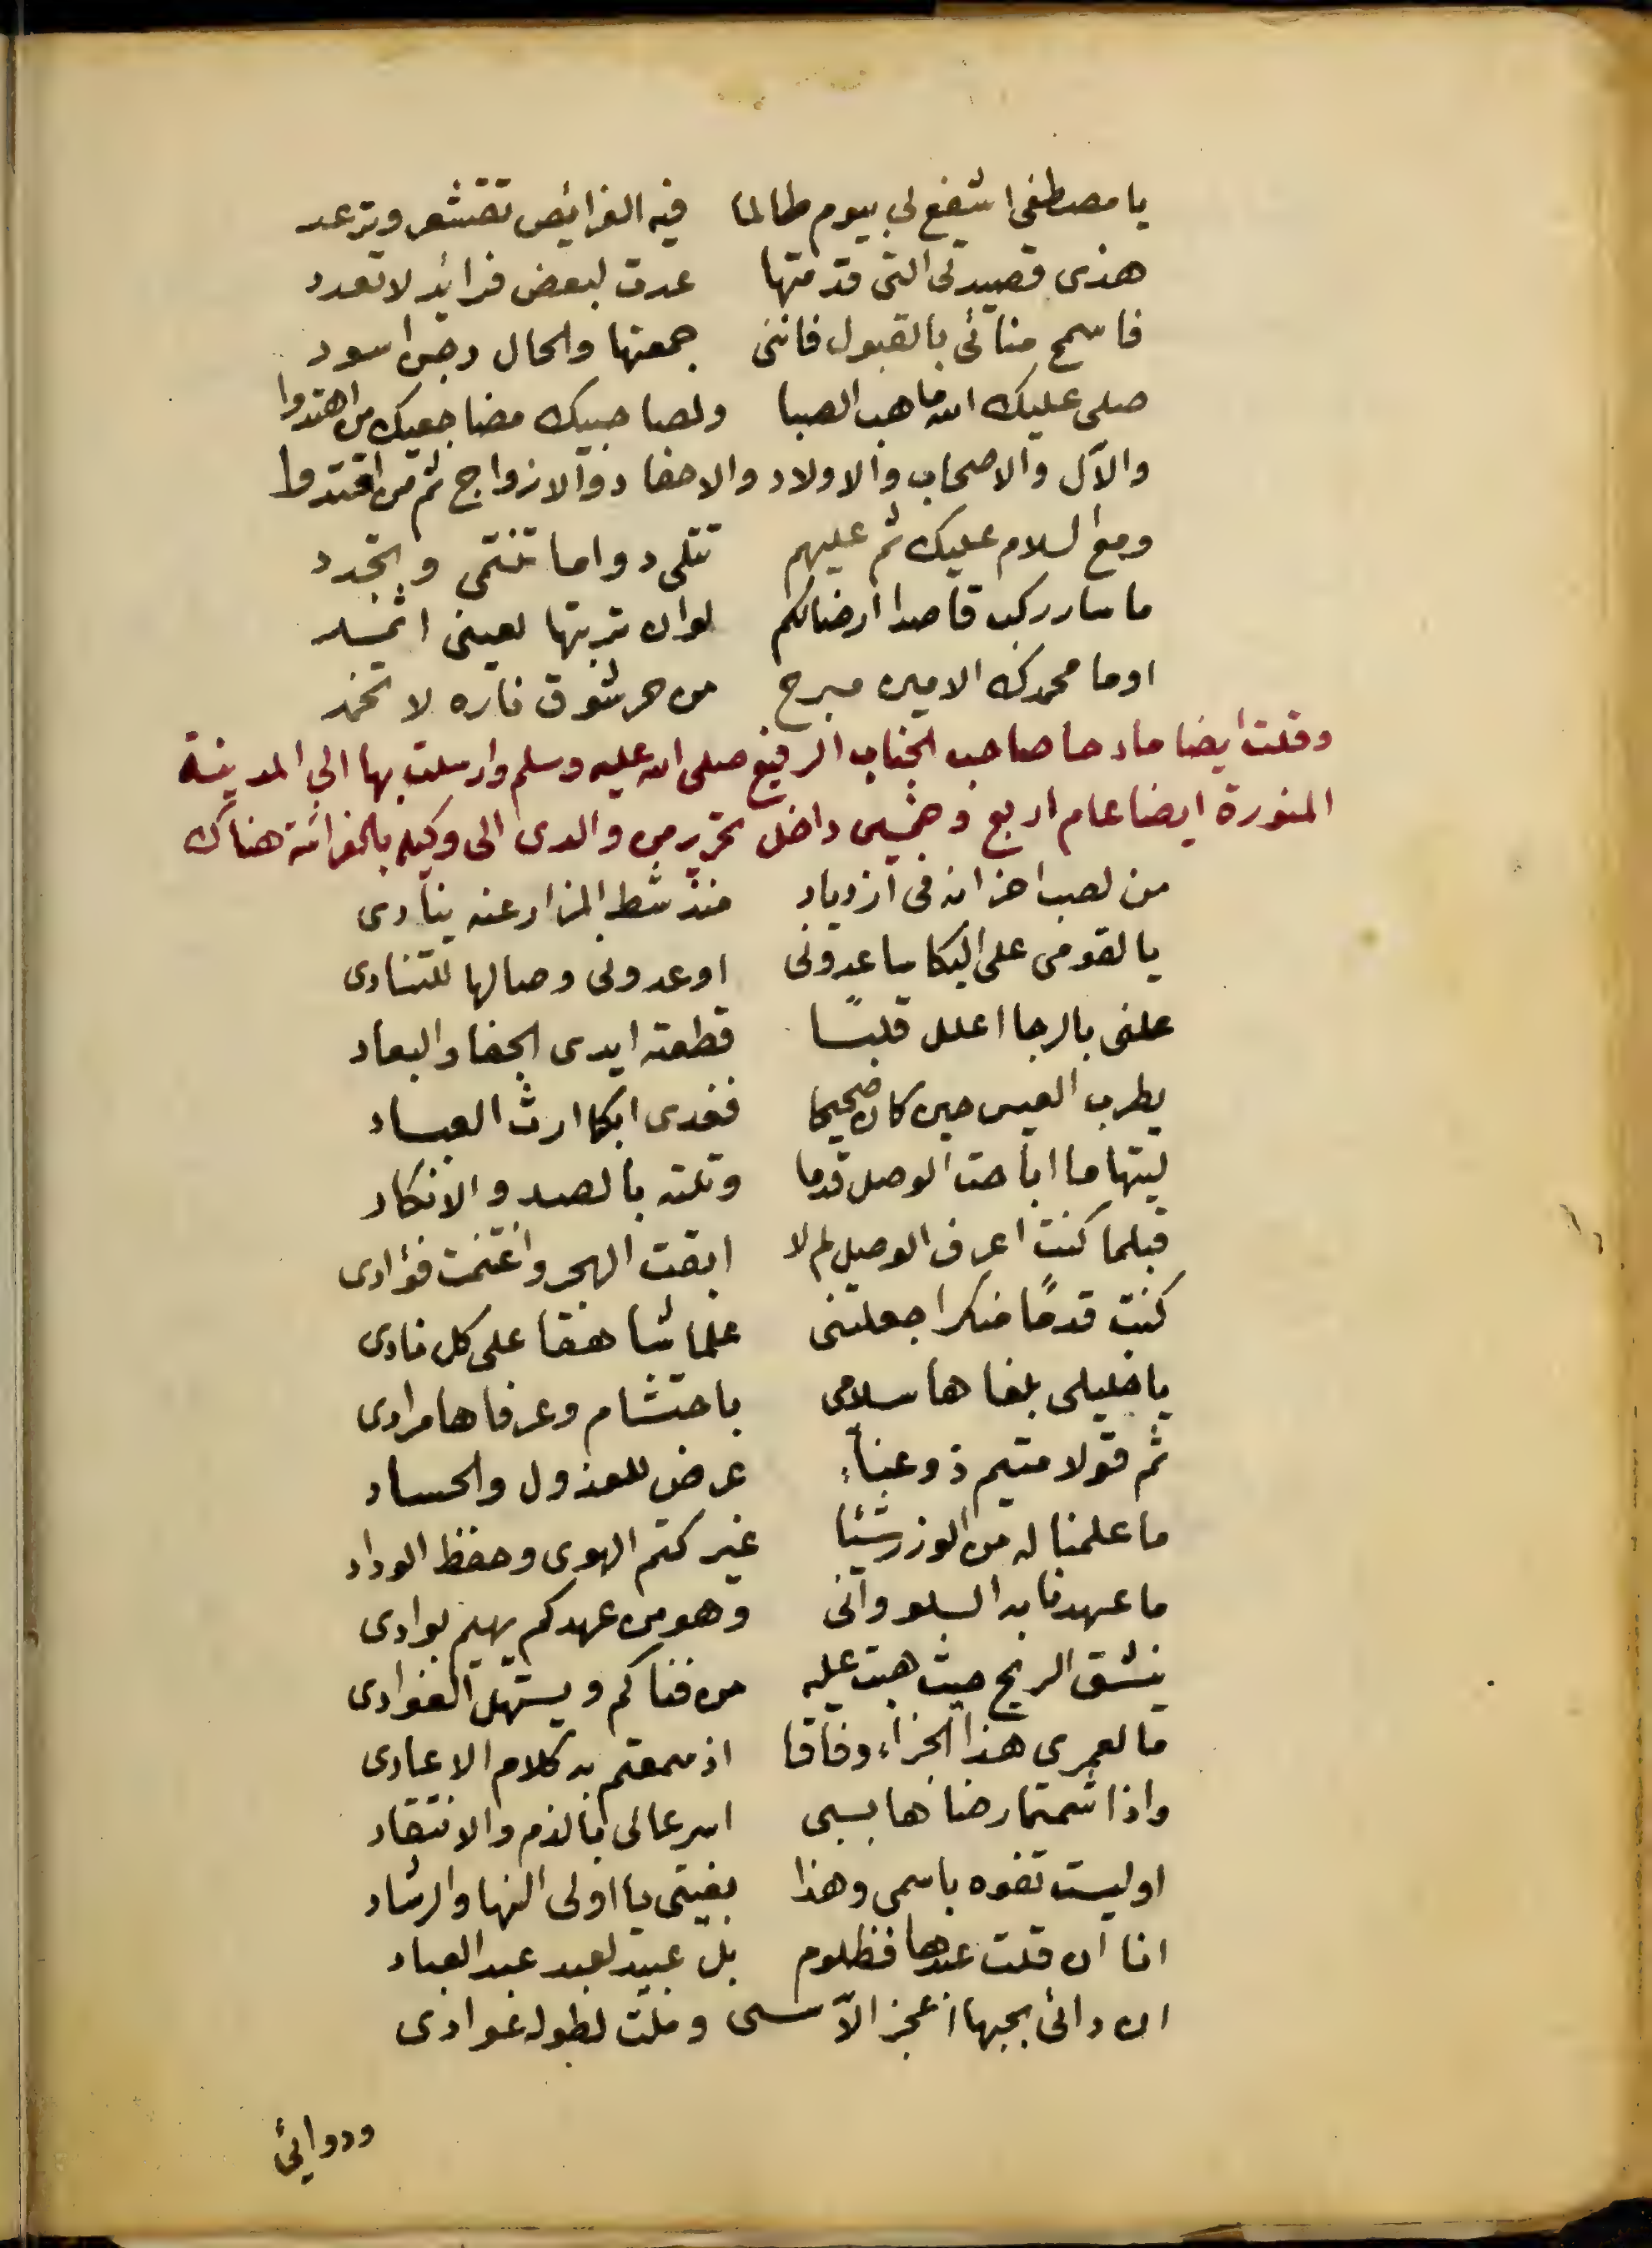 يا مصطفى اشفع لي بيوم طالما فيه الفرائص تقشعر وترعد
هذى قصيدتى التى قدمتها عدت لبعض فرائد لا تعدد
فاسمح منائى بالقبول فاننى جمعتها والحال دجن اسود
صلى عليك الله ما هب الصبا ولصاحبيك مضاجعيك من اهتدوا
والآل والاصحاب والاولاد والاحفاد والازواج ثم من اقتدوا
ومع السلام عليك ثم عليهم تتلى دواما تنتمى وتجدد
ما سار ركب قاصدا ارضالكم لوان تربتها لعينى اثمد
او ما محمدك الامين مبرح من حر شوق ناره لا تخمد
وقلت ايضا مادحا صاحب الجناب الرفيع صلى الله عليه وسلم وارسلت بها الى المدينة
المنورة ايضا عام اربع وخمسين داخل تحرير من والدى الى وكيله بالفراشة هناك
من لصب احزانه فى ازدياد منذ شط المزار عنه ينادى
يالقومى على البكا ساعدونى او عدونى وصالها للتنادى
علنى بالرجا اعلل قلبًا قطعته ايدى الجفا والبعاد
يطرب العيس حين كان صحيحا فغدى ابكا ارث العباد
ليتها ما اباحت الوصل قدما وتلته بالصد والانكاد
قبلما كنت اعرف الوصل لم لا ابقت الهجر واغتمت فؤادى
كنت قدمًا منكرا جعلتنى علما شاهقا على كل نادى
يا خليلى بلغاها سلامى باحتشام وعرفاها مرادى
ثم قولا متيم ذو عناء عرض للعذول والحساد
ما علمنا له من الوزر شيئا غير كتم الهوى وحفظ الوداد
ما عهدنا به السلو وانى وهو من عهدكم يهيم بوادى
ينشق الريح حيث هبت عليه من فناكم ويستهل الغوادى
ما لعمرى هذا الجزاء وفاقا اذ سمعتم به كلام الاعادى
واذا شمتما رضاها بسبى اسرعا لى بالذم والانتقاد
اوليست تفوه باسمى وهذا بغيتى يا اولى النها والرشاد
انا ان قلت عبدها فظلوم بل عبيد لعبد عبد العباد
ان دائى بحبها اعجز الآسى وملت لطوله عوادى
ودوائي